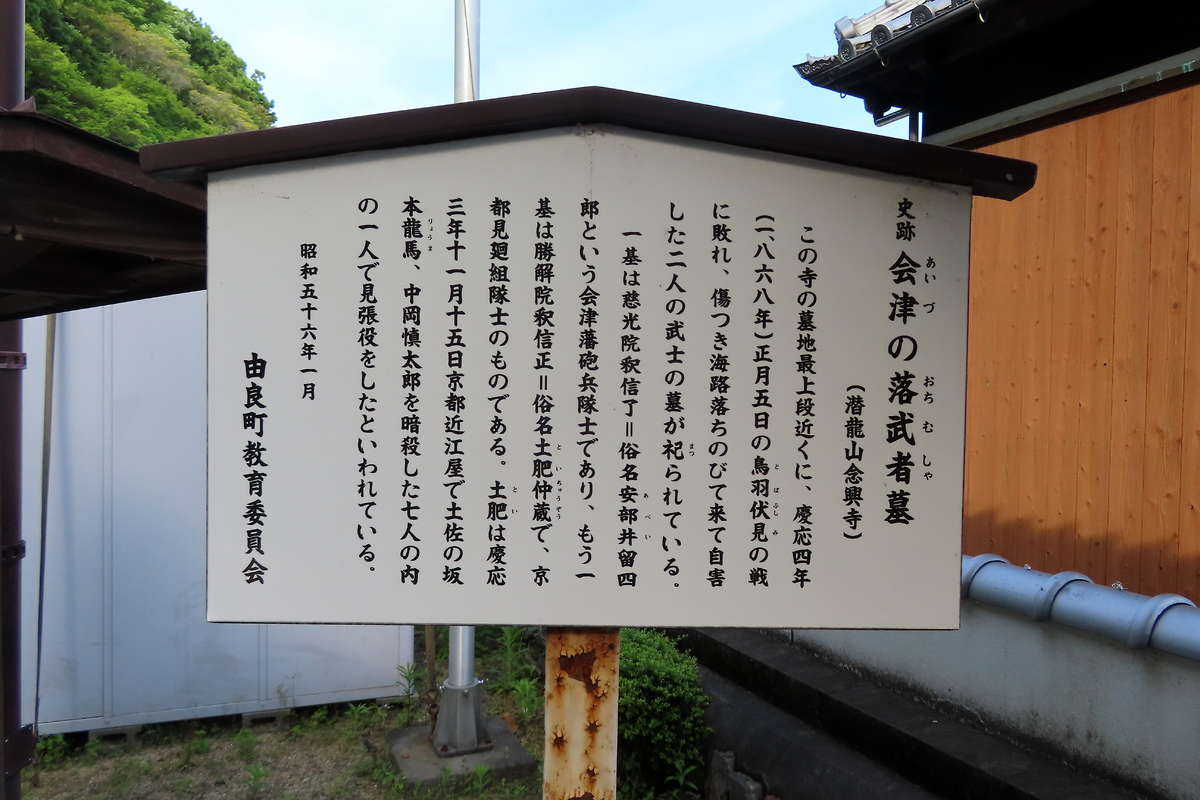 史跡 会津の落武者墓
あいづ おちむしゃ
(潜龍山念興寺)
この寺の墓地最上段近くに、慶応四年
(一八六八年)正月五日の鳥羽伏見の戦
とばふしみ
に敗れ、傷つき海路落ちのびて来て自害
した二人の武士の墓が祀られている。
まつ
一基は慈光院釈信了=俗名安部井留四
あべい
郎という会津藩砲兵隊士であり、もう一
基は勝解院釈信正=俗名土肥仲蔵で、京
といちゅうぞう
都見廻組隊士のものである。土肥は慶応
とい
三年十一月十五日京都近江屋で土佐の坂
本龍馬、中岡慎太郎を暗殺した七人の内
りょうま
の一人で見張役をしたといわれている。
昭和五十六年一月
由良町教育委員会